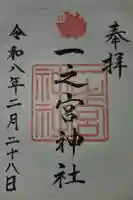 奉拝
一之宮神社
令和八年二月二十八日